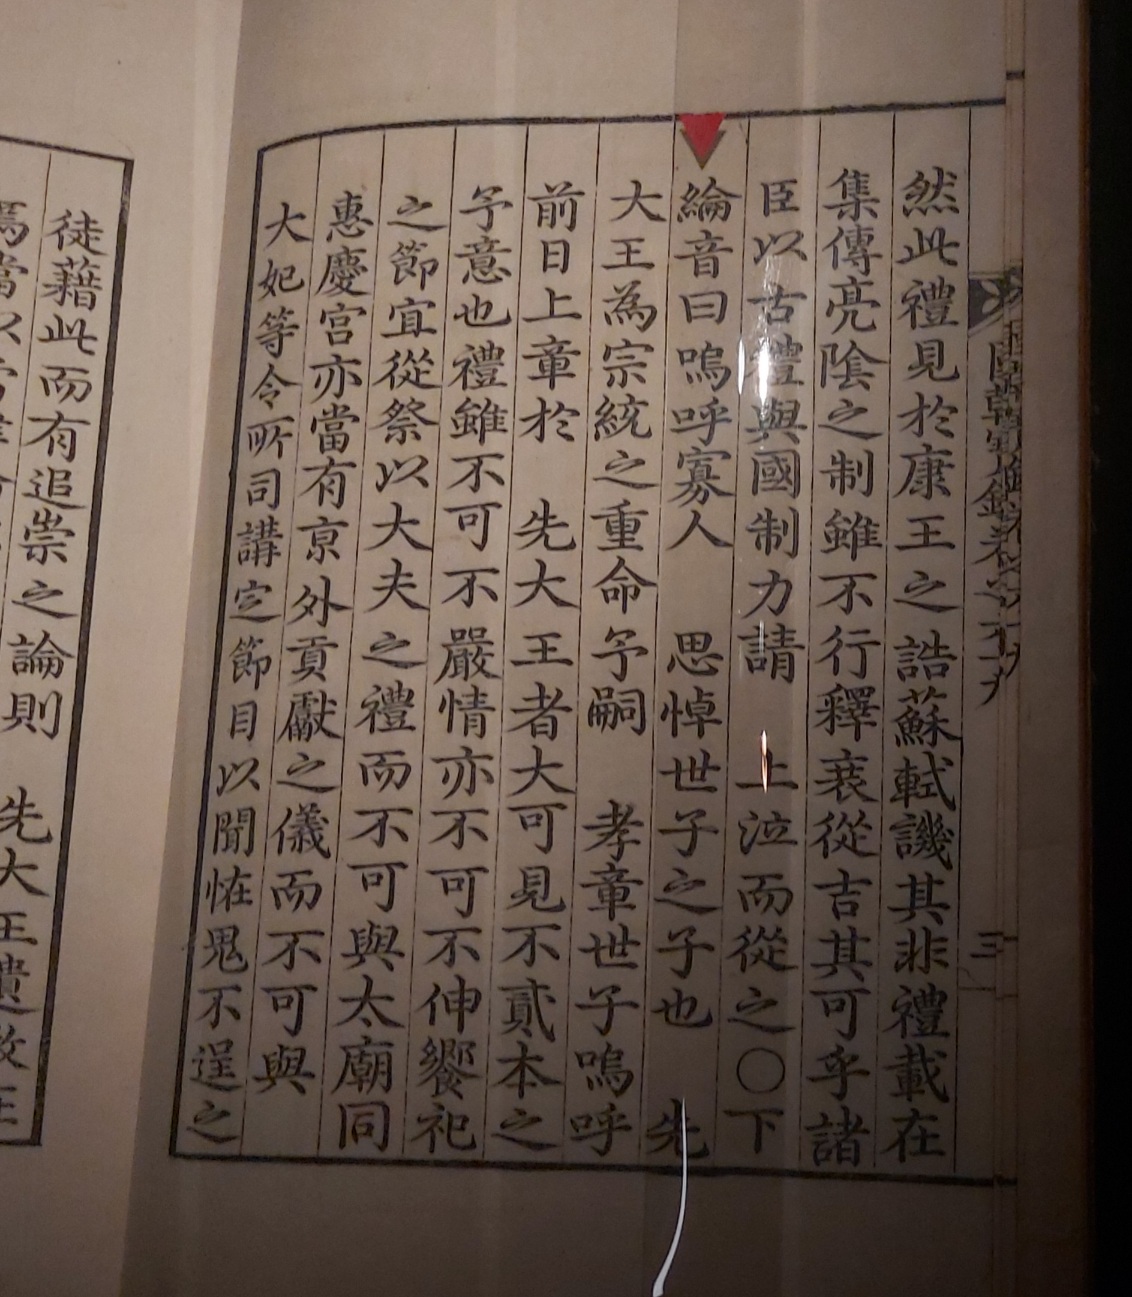 然此禮見於康王之誥蘇軾譏其非禮載在
集傳亮陰之制雖不行釋衰從吉其可乎諸
臣以古禮與國制力請　上泣而從之〇下
綸音曰嗚呼寡人　思悼世子之子也　先
大王為宗統之重命予嗣　孝章世子嗚呼
前日上章於　先大王者大可見不貳本之
予意也禮雖不可不嚴情亦不可不伸饗祀
之節宜從祭以大夫之禮而不可與太廟同
惠慶宮亦當有京外貢獻之儀而不可與
大妃等令所司講定節目以聞恠鬼不逞之
徒藉此而有追崇之論則　先大王遺教在